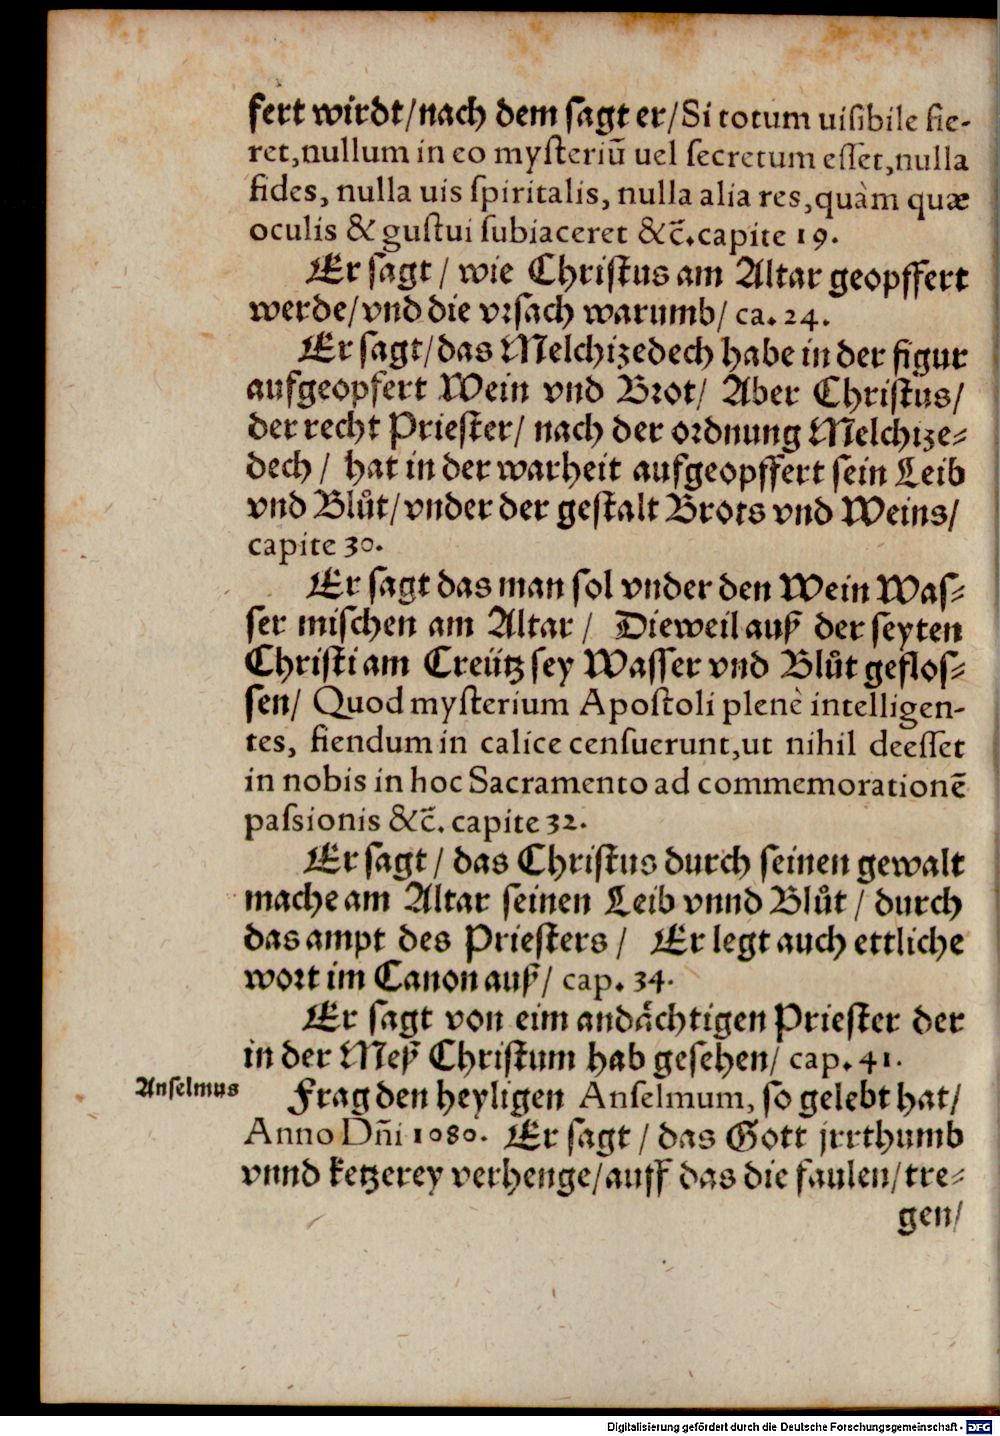 fert wirdt/nach dem sagt er/Si totum uisibile fie-
ret,nullum in eo mysteriū uel secretum esset,nulla
fides, nulla uis spiritalis, nulla alia res,quàm quæ
oculis & gustui subiaceret &c̄.capite 19.
Er sagt / wie Christus am Altar geopffert
werde/vnd die vrsach warumb/ ca. 24.
Er sagt/das Melchizedech habe in der figur
aufgeopfert Wein vnd Brot/ Aber Christus/
der recht Priester/ nach der ordnung Melchize-
dech / hat in der warheit aufgeopffert sein Leib
vnd Blůt/vnder der gestalt Brots vnd Weins/
capite 30.
Er sagt das man sol vnder den Wein Was-
ser mischen am Altar / Dieweil auß der seyten
Christi am Creütz sey Wasser vnd Blůt geflos-
sen/ Quod mysterium Apostoli plenè intelligen-
tes, fiendum in calice censuerunt,ut nihil deesset
in nobis in hoc Sacramento ad commemorationē
passionis &c̄. capite 32.
Er sagt / das Christus durch seinen gewalt
mache am Altar seinen Leib vnnd Blůt / durch
das ampt des Priesters / Er legt auch ettliche
wort im Canon auß/ cap. 34.
Er sagt von eim andåchtigen Priester der
in der Meß Christum hab gesehen/ cap. 41.
Anselmus
Frag den heyligen Anselmum, so gelebt hat/
Anno Dn̄i 1080. Er sagt / das Gott jrrthumb
vnnd ketzerey verhenge/auff das die faulen/tre-
gen/
Digitalisierung gefördert durch die Deutsche Forschungsgemeinschaft - DFG